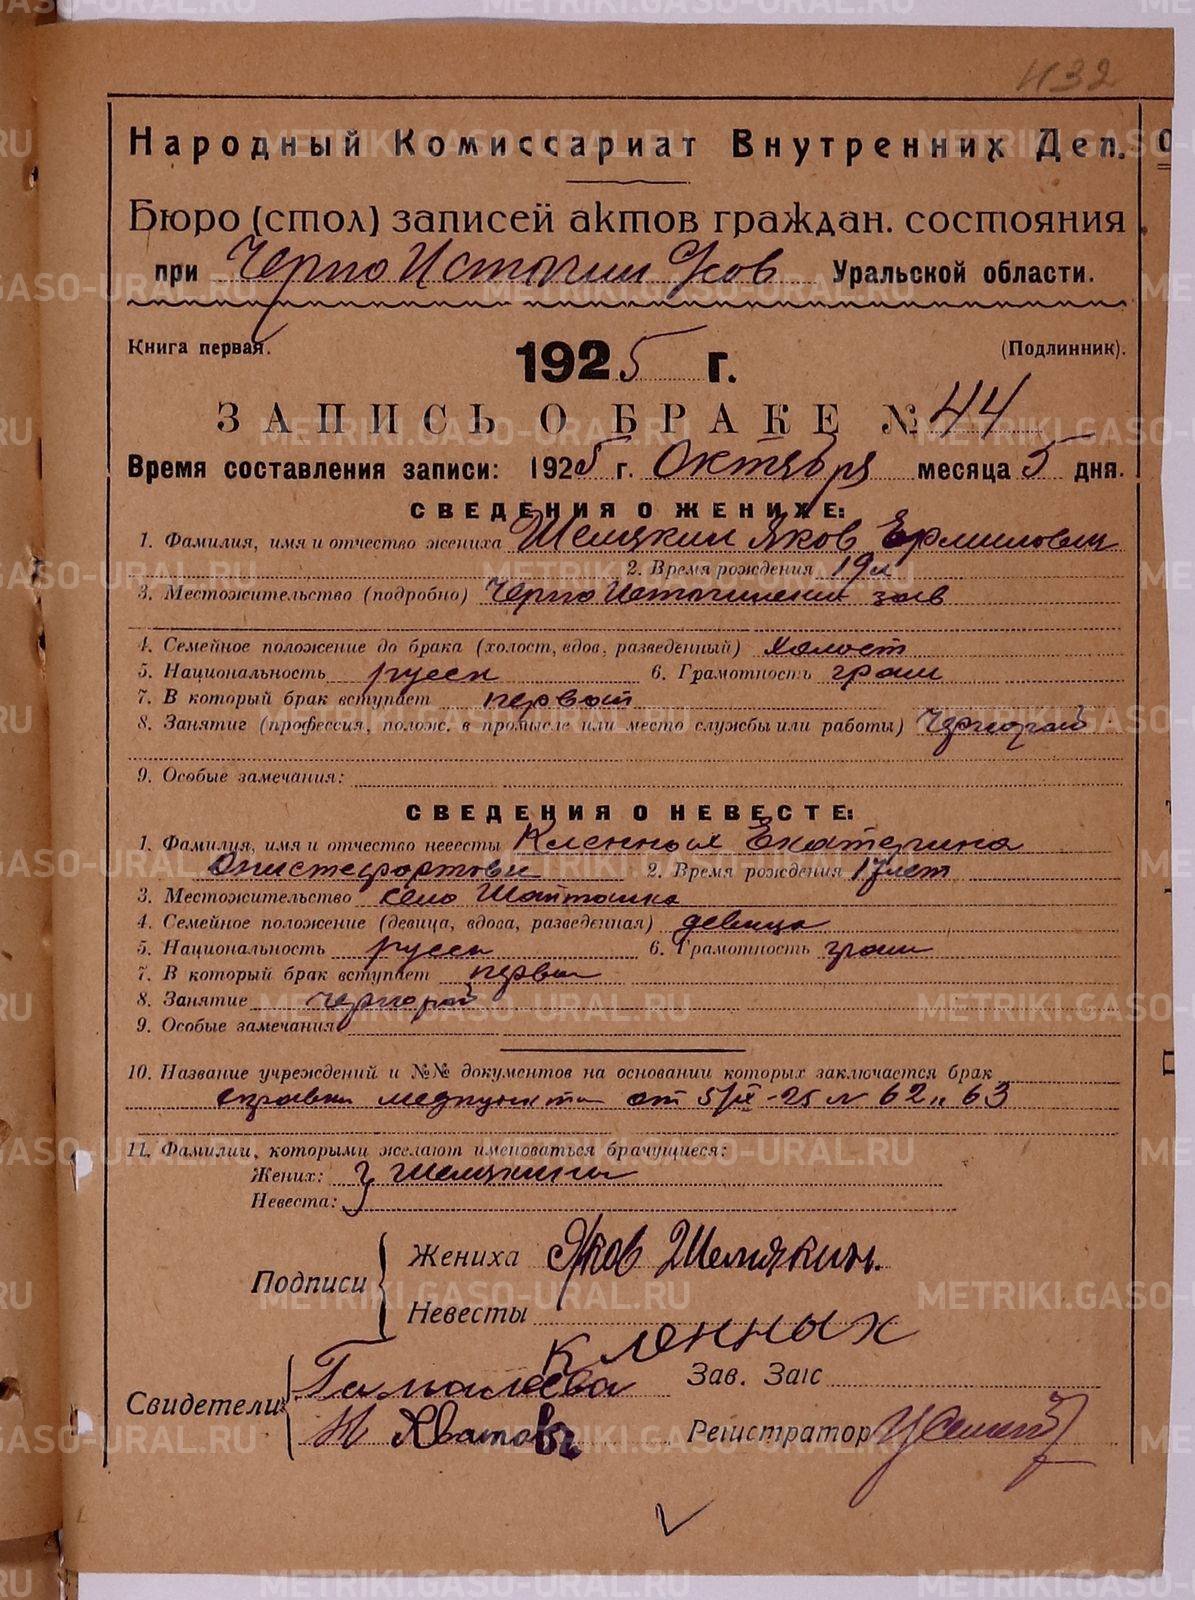 432
Народный Комиссариат Внутренних Дел.
Бюро (стол) записей актов граждан. состояния
при Черно Источин Уральской области.
Книга первая. (Подлинник).
1925 г.
ЗАПИСЬ О БРАКЕ № 44
Время составления записи: 1925 г. Октября месяца 5 дня.
СВЕДЕНИЯ О ЖЕНИХЕ:
1. Фамилия, имя и отчество жениха Шемякин Яков
2. Время рождения 19 л
3. Местожительство (подробно) Черно Источинский зав
4. Семейное положение до брака (холост, вдов, разведенный) холост
5. Национальность русск 6. Грамотность грам
7. В который брак вступает первый
8. Занятие (профессия, полож. в промысле или место службы или работы) чернораб
9. Особые замечания:
СВЕДЕНИЯ О НЕВЕСТЕ:
1. Фамилия, имя и отчество невесты Кленных Екатерина
2. Время рождения 17 лет
3. Местожительство село Шайташка
4. Семейное положение (девица, вдова, разведенная) девица
5. Национальность русск 6. Грамотность грам
7. В который брак вступает первы
8. Занятие чернораб
9. Особые замечания
10. Название учреждений и №№ документов на основании которых заключается брак
справки медпункта от 5/ -25 № 62 и 63
11. Фамилии, которыми желают именоваться брачущиеся:
Жених: Шемякины
Невеста:
Подписи Жениха Яков Шемякин.
Невесты
Кленных
Свидетели Зав. Загс
Хватова Регистратор
METRIKI.GASO-URAL.RU